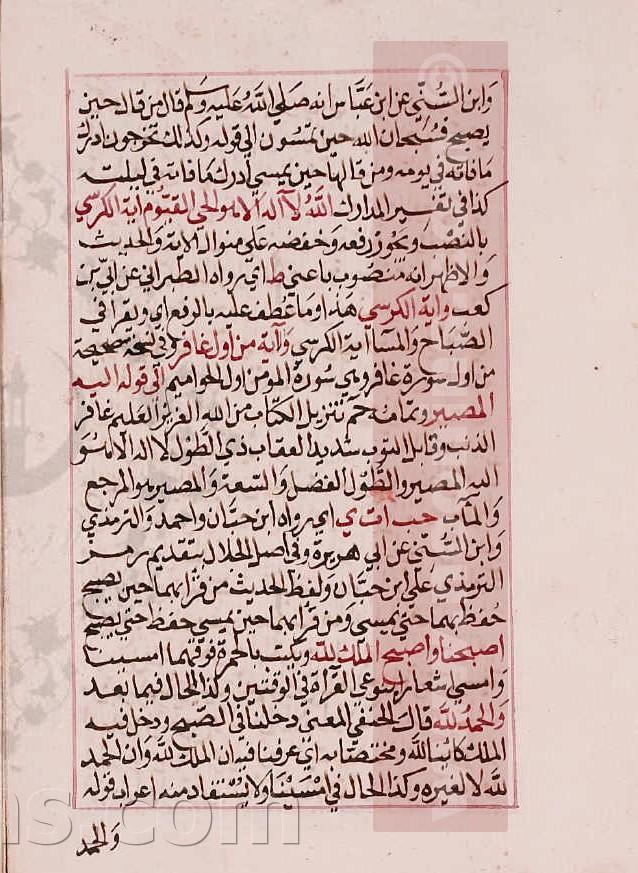 وابن السني عن ابن عباس انه صلي الله عليه وسلم قال من قال حين
يصبح فسبحان الله حين تمسون الي قوله وكذلك تخرجون ادرك
ما فاته في يومه ومن قالها حين يمسي ادرك ما فاته في ليلته
كذا في تفسير المدارك الله لا اله الا هو الحي القيوم اية الكرسي
بالنصب ويجوز رفعه وخفضه علي منوال الاية والحديث
والاظهر انه منصوب باعني ط اي رواه الطبراني عن ابي بن
كعب واية الكرسي هذا وما عطف عليه بالرفع اي ويقرا في
الصباح والمسا اية الكرسي وآية من اول غافر وفي نسخة صحيحة
من اول سورة غافر وهي سورة المومن اول الحواميم الي قوله اليه
المصير وتمامه حم تنزيل الكتاب من الله العزيز العليم غافر
الذنب وقابل التوب شديد العقاب ذي الطول لا اله الا هو
اليه المصير والطول الفضل والسعة والمصير هو المرجع
والمآب حب ا ت ي اي رواه ابن حبان واحمد والترمذي
وابن السني عن ابي هريرة وفي اصل الجلال بتقديم رمز
الترمذي علي ابن حبان ولفظ الحديث من قرا بهما حين يصبح
حفظ بهما حتي يمسي ومن قرا بهما حين يمسي حفظ حتي يصبح
اصبحنا واصبح الملك لله ويكتب بالحمرة فوقهما امسينا
وامسي اشعارا بنوعي القراة في الوقتين وكذا الحال فيما بعد
والحمد لله قال الحنفي المعني دخلنا في الصبح ودخل فيه
الملك كائنا لله ومختصا به اي عرفنا فيه ان الملك لله وان الحمد
لله لا لغيره وكذا الحال في امسينا ولا يستفاد منه اعراب قوله
والحمد
ns.com